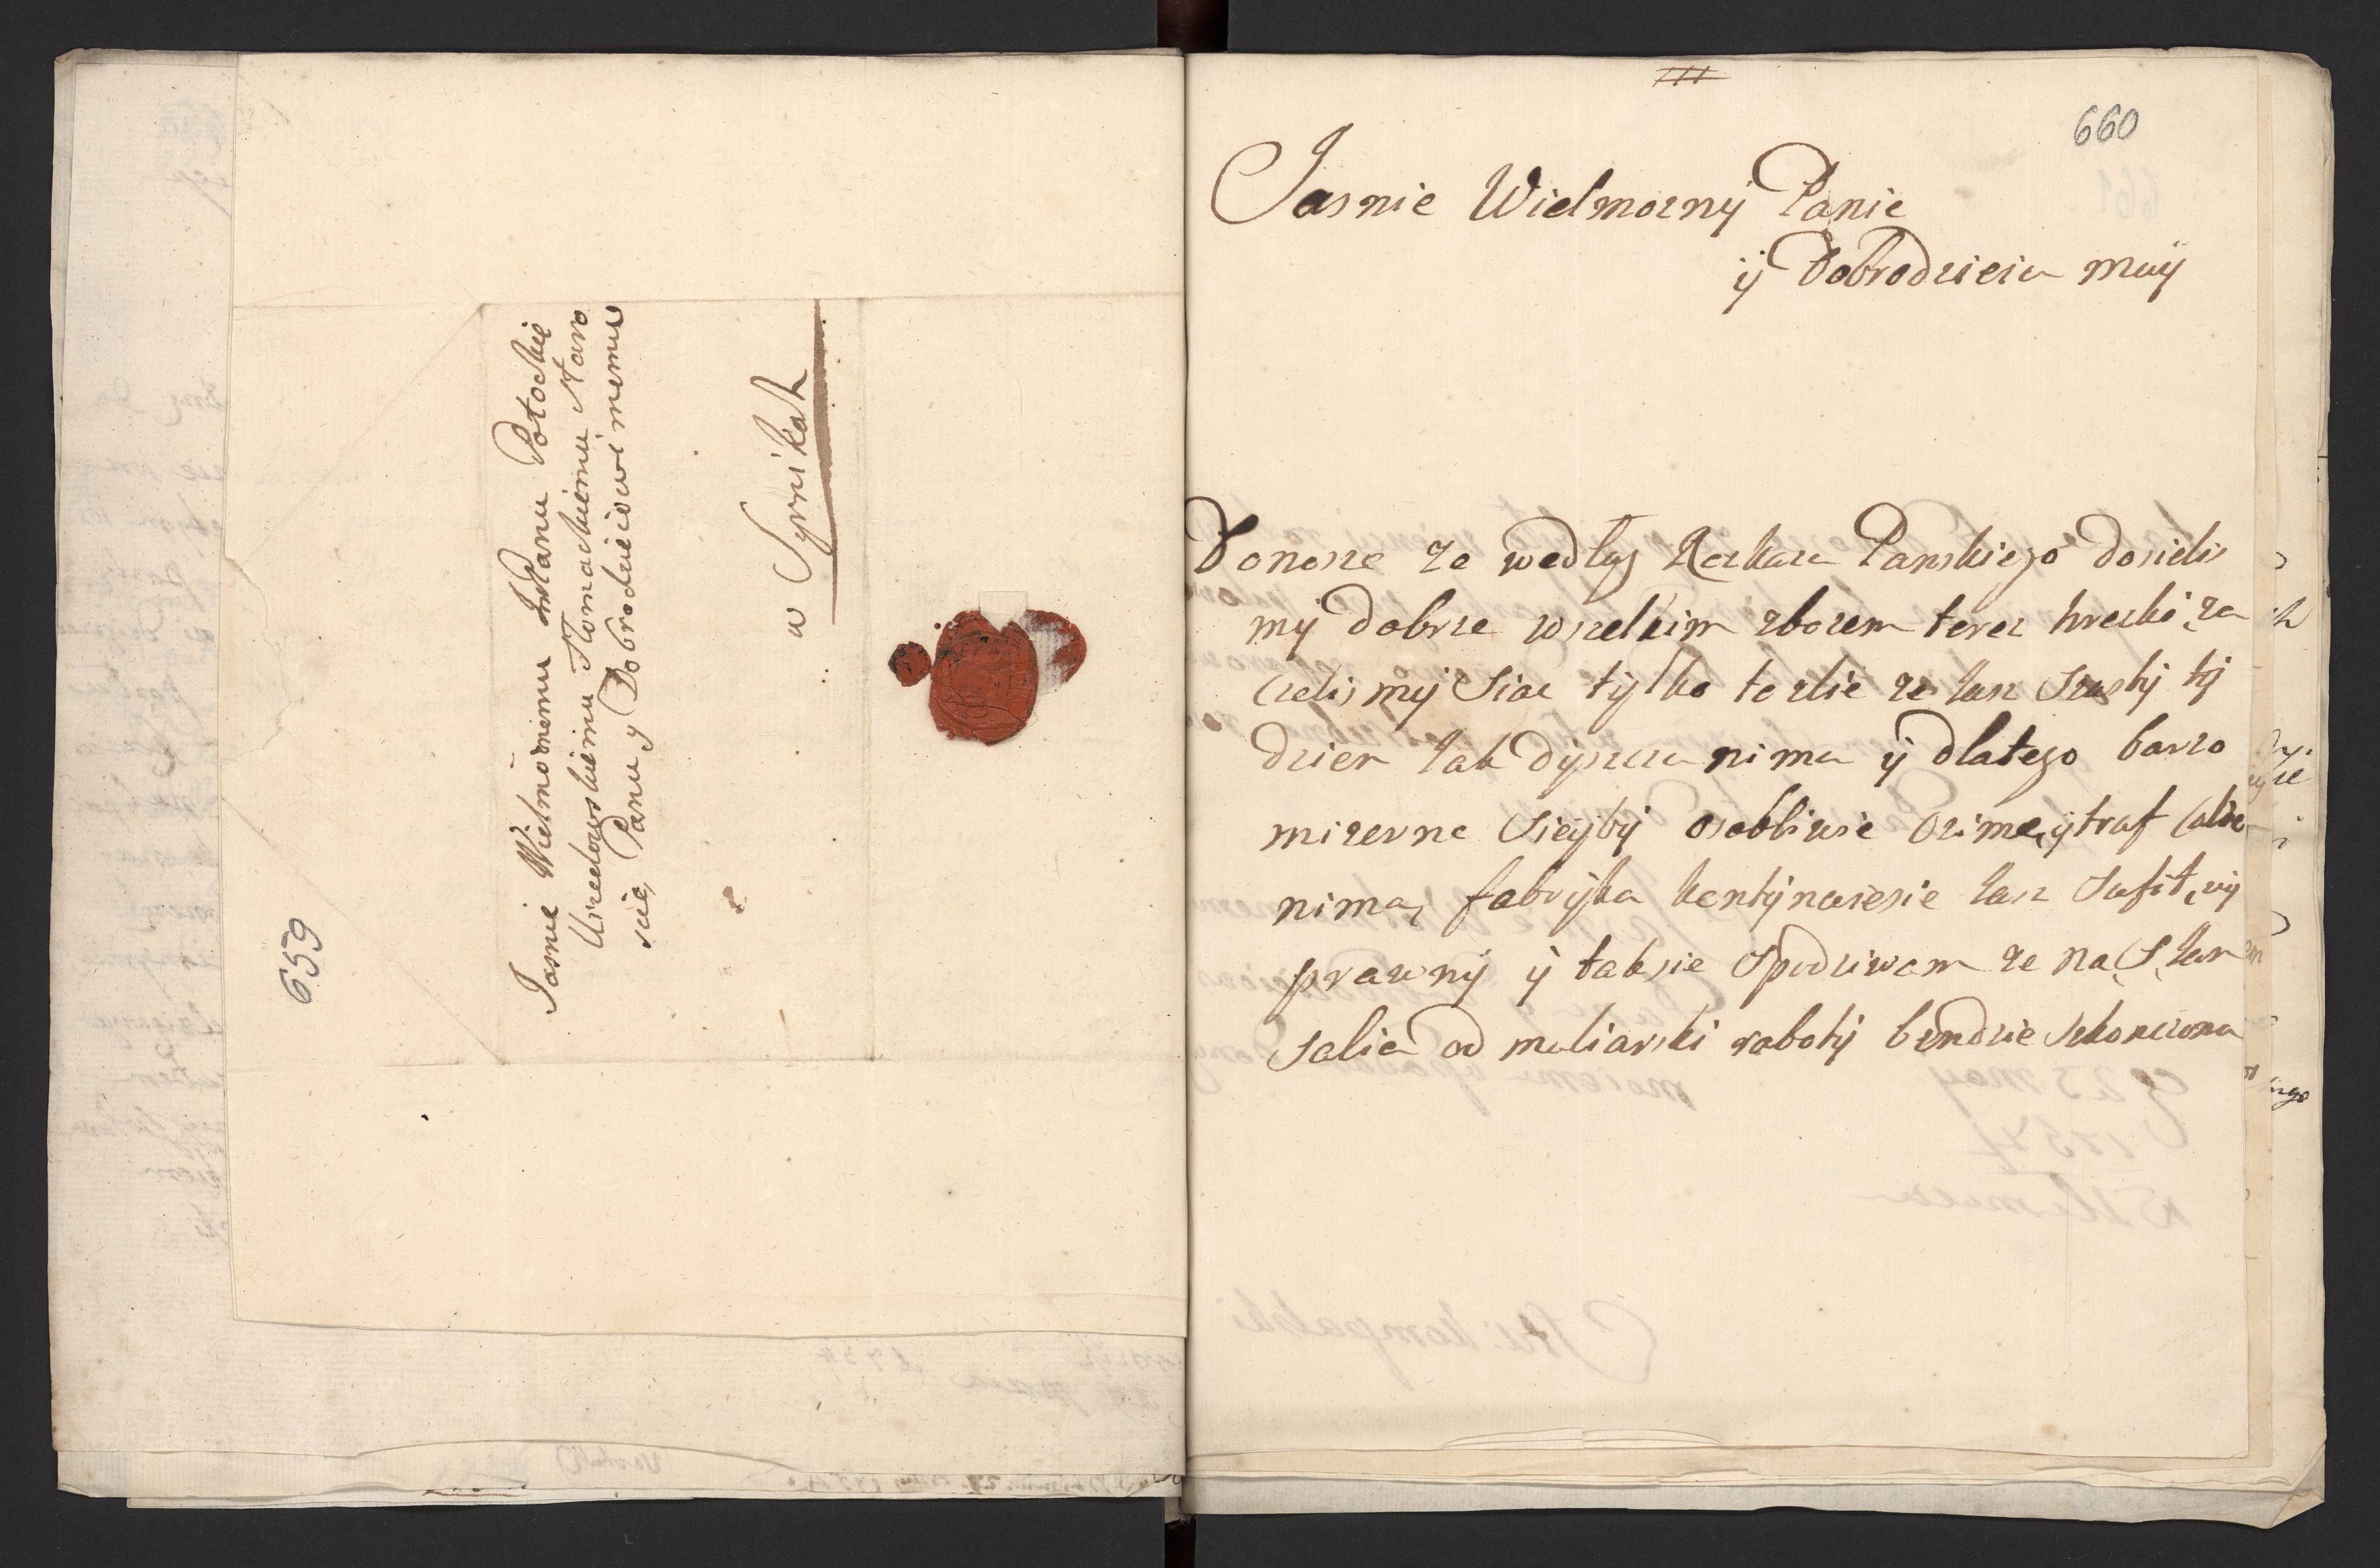 659
Jasnie Wielmożnemu JmPanu Potockie
Urzedowskiemu Tłomackiemu Staro
scie, Panu y Dobrodzieiowi memu
w Syrnikah
660
Jasnie Wielmozny Panie
ÿ Dobrodzieia muÿ
Donosze ze wedlug Rozkazu Panskiego dosielis
mÿ dobrze wszelkim zbozem teraz hreczki za
czelismÿ siac tÿlko to zlie ze tÿ
dzien iak dÿszczu nima ÿ dlatego barzo
mizerne sieÿbÿ osobliwie ozime, ÿtraf calkie
nima, fabrÿka kontÿnuiesie iusz Sufit, wÿ
prawnÿ ÿ taksie spodziwam ze na S, Jan
salia od maliarski robotÿ bendzie skonczona